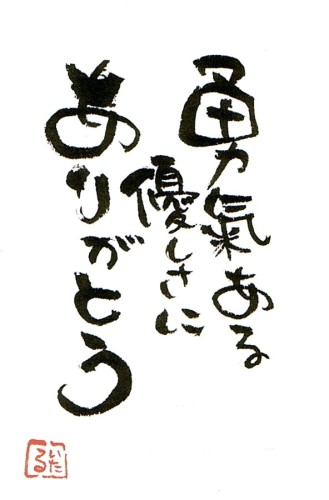 勇氣ある
優しさに
ありがとう
いたる